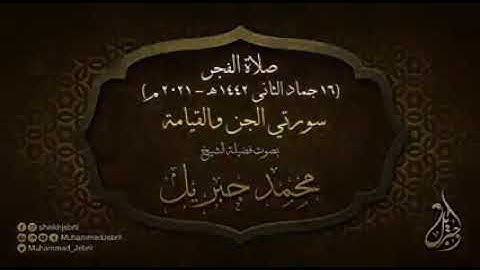 صلاة الفجر
(١٦ جماد الثانى ١٤٤٢ هـ - ٢٠٢١ م)
سورتي الجن والقيامة
بصوت فضيلة الشيخ
محمد جبريل
جبريل
sheikhjebril
MuhammadJebril
Muhammad_Jebril